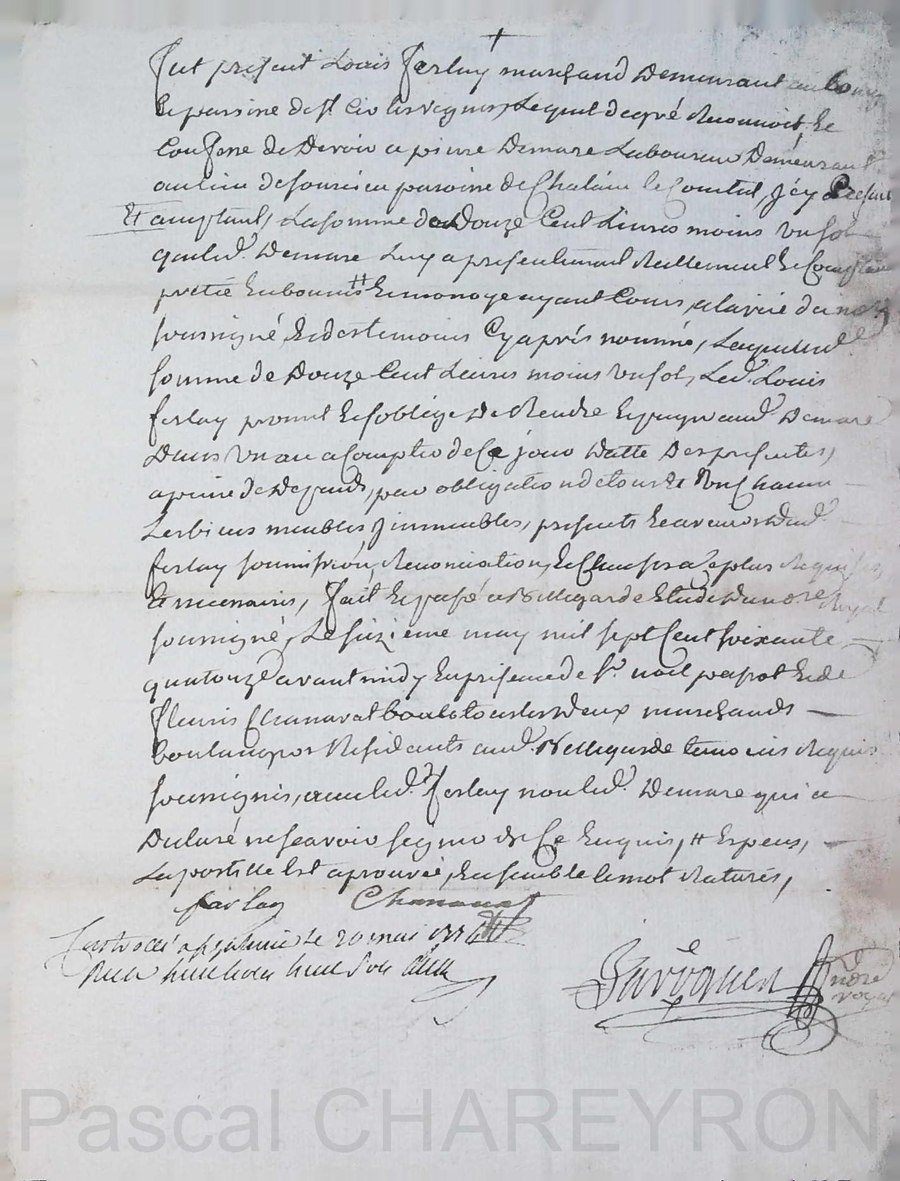 fut present Louis ferlay marchand Demeurant au bourg
Et paroisse de st Cir les vignes, Lequel de gré Reconnoit, Et
Confesse de Devoir a pierre Demare Laboureur Demeurant
au lieu de paroisse de Chalain le Comtal, Jcy Present
Et acceptant, La somme de Douze Cent Livres moins un sol
que led. Demare Luy a presentement Reellement Et Comptant
preté En bonne # Et monoye ayant Cours, a la vüe du no.re
soussigné, Et des temoins Cy aprés nommé, Laquelle d.e
somme de Douze Cent Livres moins un sol, Led. Louis
ferlay promet Et s'oblige De Rendre Et payer aud. Demare
Dans un an a Compter de Ce jour Datte Des presentes,
a peine de Depends, par obligation de tous Et Un Chacun
Les biens meubles Jmmeubles, presents Et avenir dud.
ferlay soumission, Renonciation, Et Clauses a ce plus Requises
Et necessaires, fait Et passé a Bellegarde Etude du no.re Royal
soussigné, Le seizieme may mil sept Cent soixante
quatorze avant midy En presence de Sr. noel papot Et de
fleuris Chanavat tous les Deux marchands
boulangers Residents aud. Bellegarde temoins Requis
soussignés, avec led. ferlay non led. Demare qui a
Declaré ne sçavoir signer de Ce Enquis, # Especes,
La postille Est aprouvée, Ensemble le mot Raturés,
farlay Chanavat
Controllé a le 20 mai 1774
Recu huit livres huit sols
no.re
royal
Pascal CHAREYRON